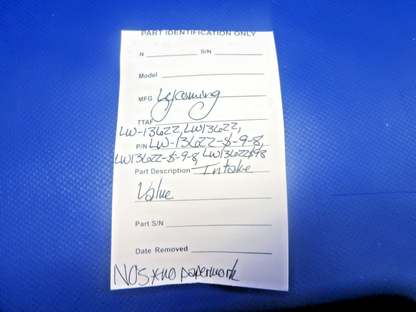 PART IDENTIFICATION ONLY
N S/N
Model
MFG Lycoming
TTAF
LW-13622, LW13622,
P/N LW-13622-S-9-8,
LW13622-S-9-8, LW13622S98
Part Description Intake
Valve
Part S/N
Date Removed
NOS * no paperwork